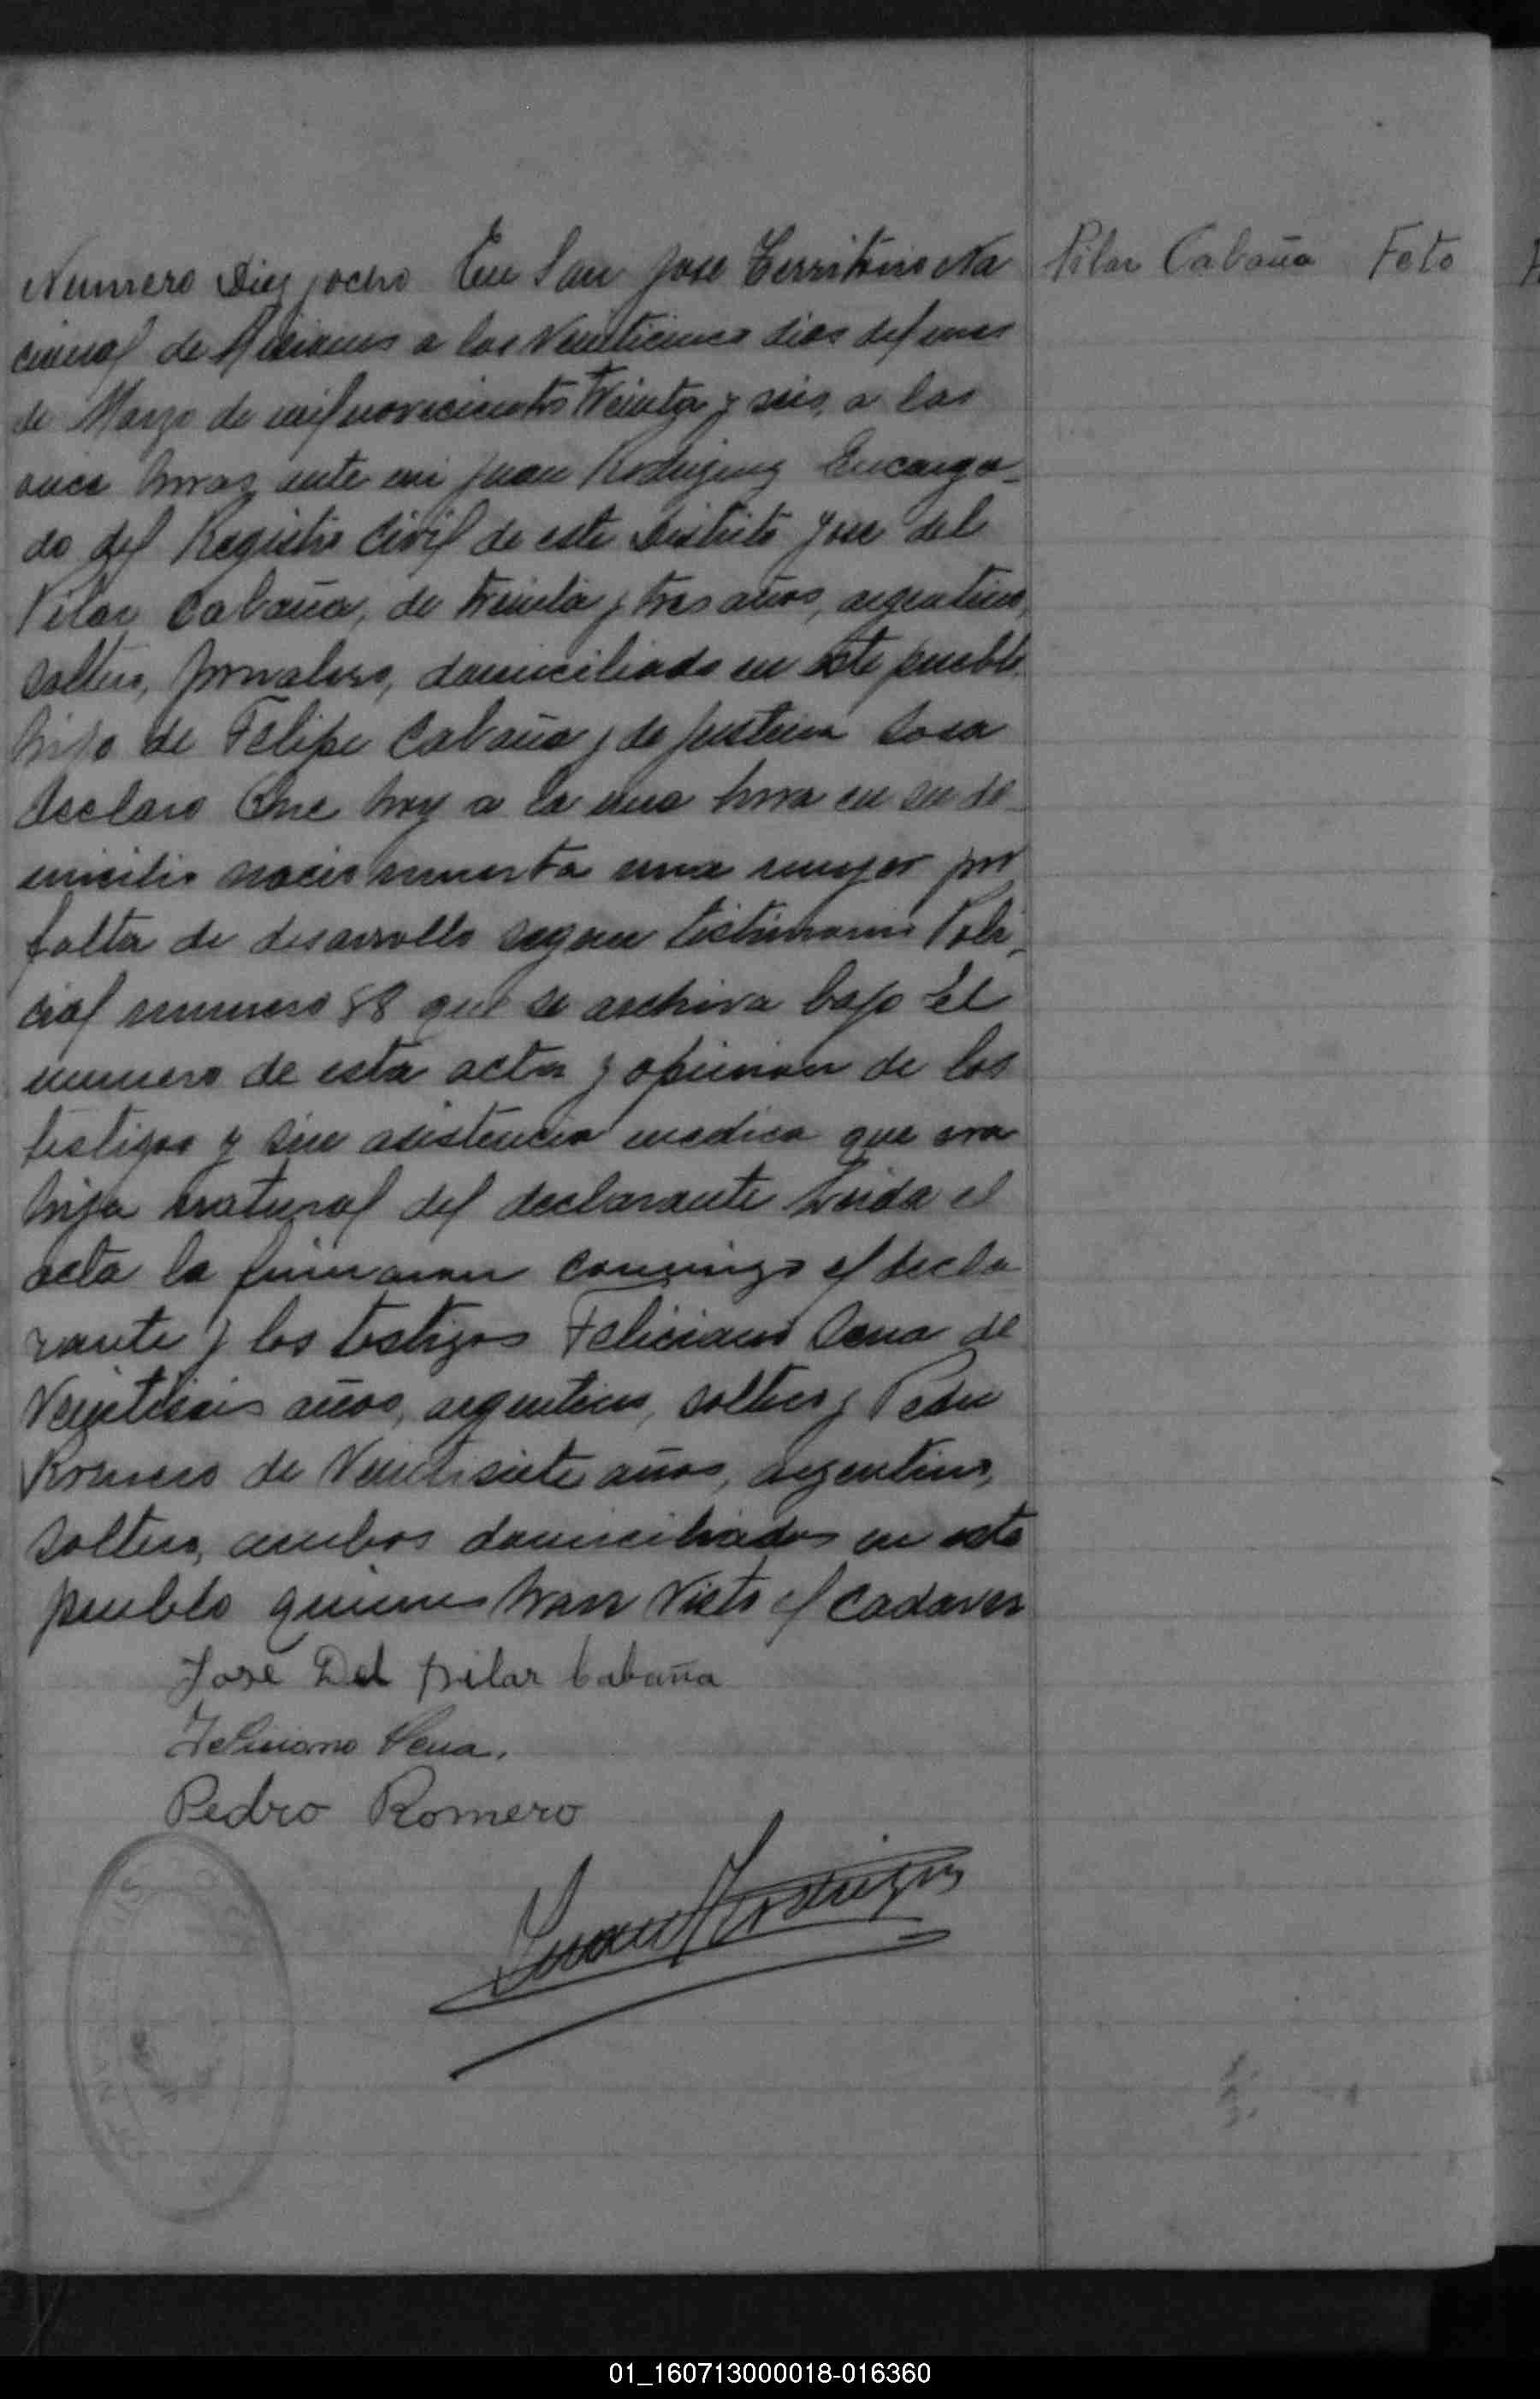 Numero Diez y ocho En San Jose Territorio Na
Pilar Cabaña Feto
cional de Misiones a los Veinticinco dias del mes
de Marzo de mil novecientos treinta y seis, a las
once horas, ante mi Juan Rodriguez Encarga-
do del Registro Civil de este Distrito Jose del
Pilar Cabaña, de treinta y tres años, argentino,
soltero, jornalero, domiciliado en este pueblo
hijo de Felipe Cabaña y de Justina Sosa
declaro Que hoy a la una hora en su do-
micilio nacio muerta una mujer por
falta de desarrollo segun testimonio Poli-
cial numero 88 que se archiva bajo El
numero de esta acta y opinion de los
testigos y sin asistencia medica que era
hija natural del declarante Leida el
acta la firmaron conmigo el decla
rante y los testigos Feliciano Sena de
Veintiseis años, argentino, soltero y Pedro
Romero de Veintisiete años, argentino,
soltero, ambos domiciliados en este
pueblo quienes han Visto el cadaver
Jose Del pilar Cabaña
Feliciano Sena.
Pedro Romero
Juan Rodriguez
01_160713000018-016360